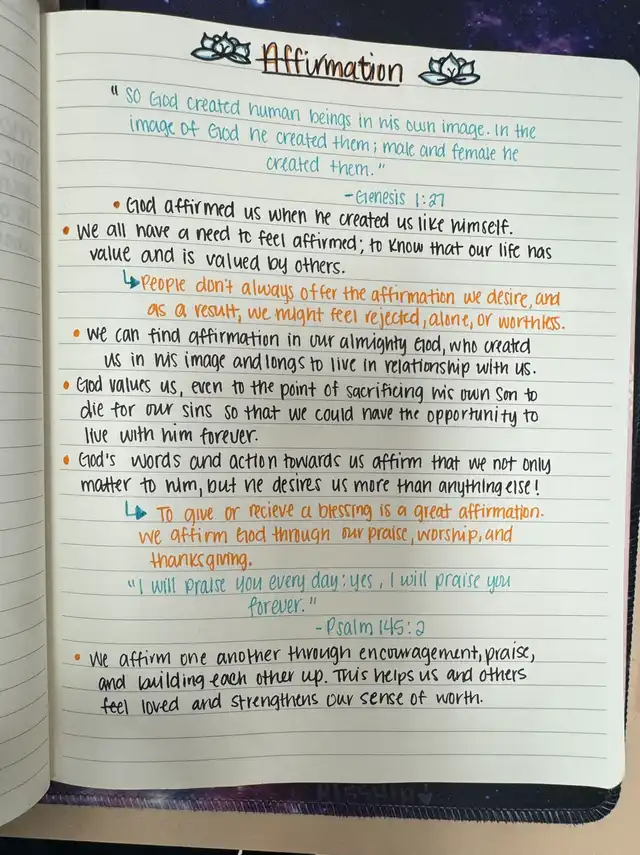 Affirmation
"So God created human beings in his own image. In the
image of God he created them; male and female he
created them."
-Genesis 1:27
• God affirmed us when he created us like himself.
• We all have a need to feel affirmed; to know that our life has
value and is valued by others.
↳ People don't always offer the affirmation we desire, and
as a result, we might feel rejected, alone, or worthless.
• We can find affirmation in our almighty God, who created
us in his image and longs to live in relationship with us.
• God values us, even to the point of sacrificing his own Son to
die for our sins so that we could have the opportunity to
live with him forever.
• God's words and action towards us affirm that we not only
matter to him, but he desires us more than anything else!
↳ To give or recieve a blessing is a great affirmation.
We affirm God through our praise, worship, and
thanksgiving.
"I will praise you every day: yes, I will praise you
forever."
-Psalm 145:2
• We affirm one another through encouragement, praise,
and building each other up. This helps us and others
feel loved and strengthens our sense of worth.